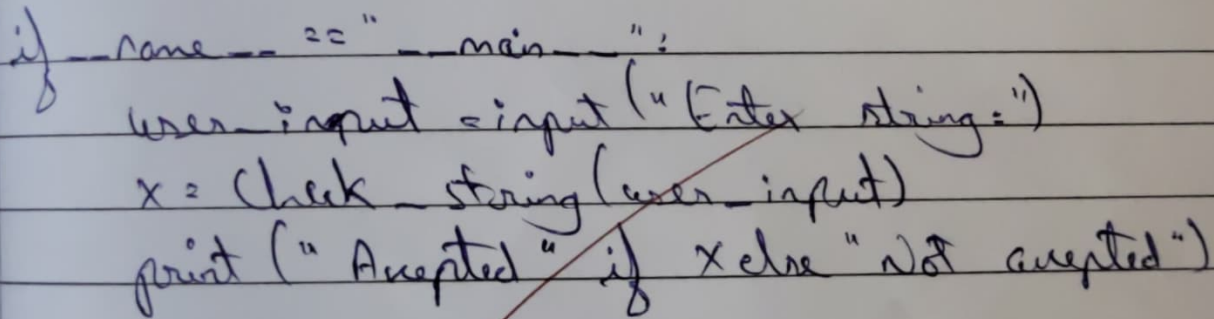 if __name__ == "__main__":
user_input = input("Enter string:")
x = Check_string(user_input)
print("Accepted" if x else "Not accepted")